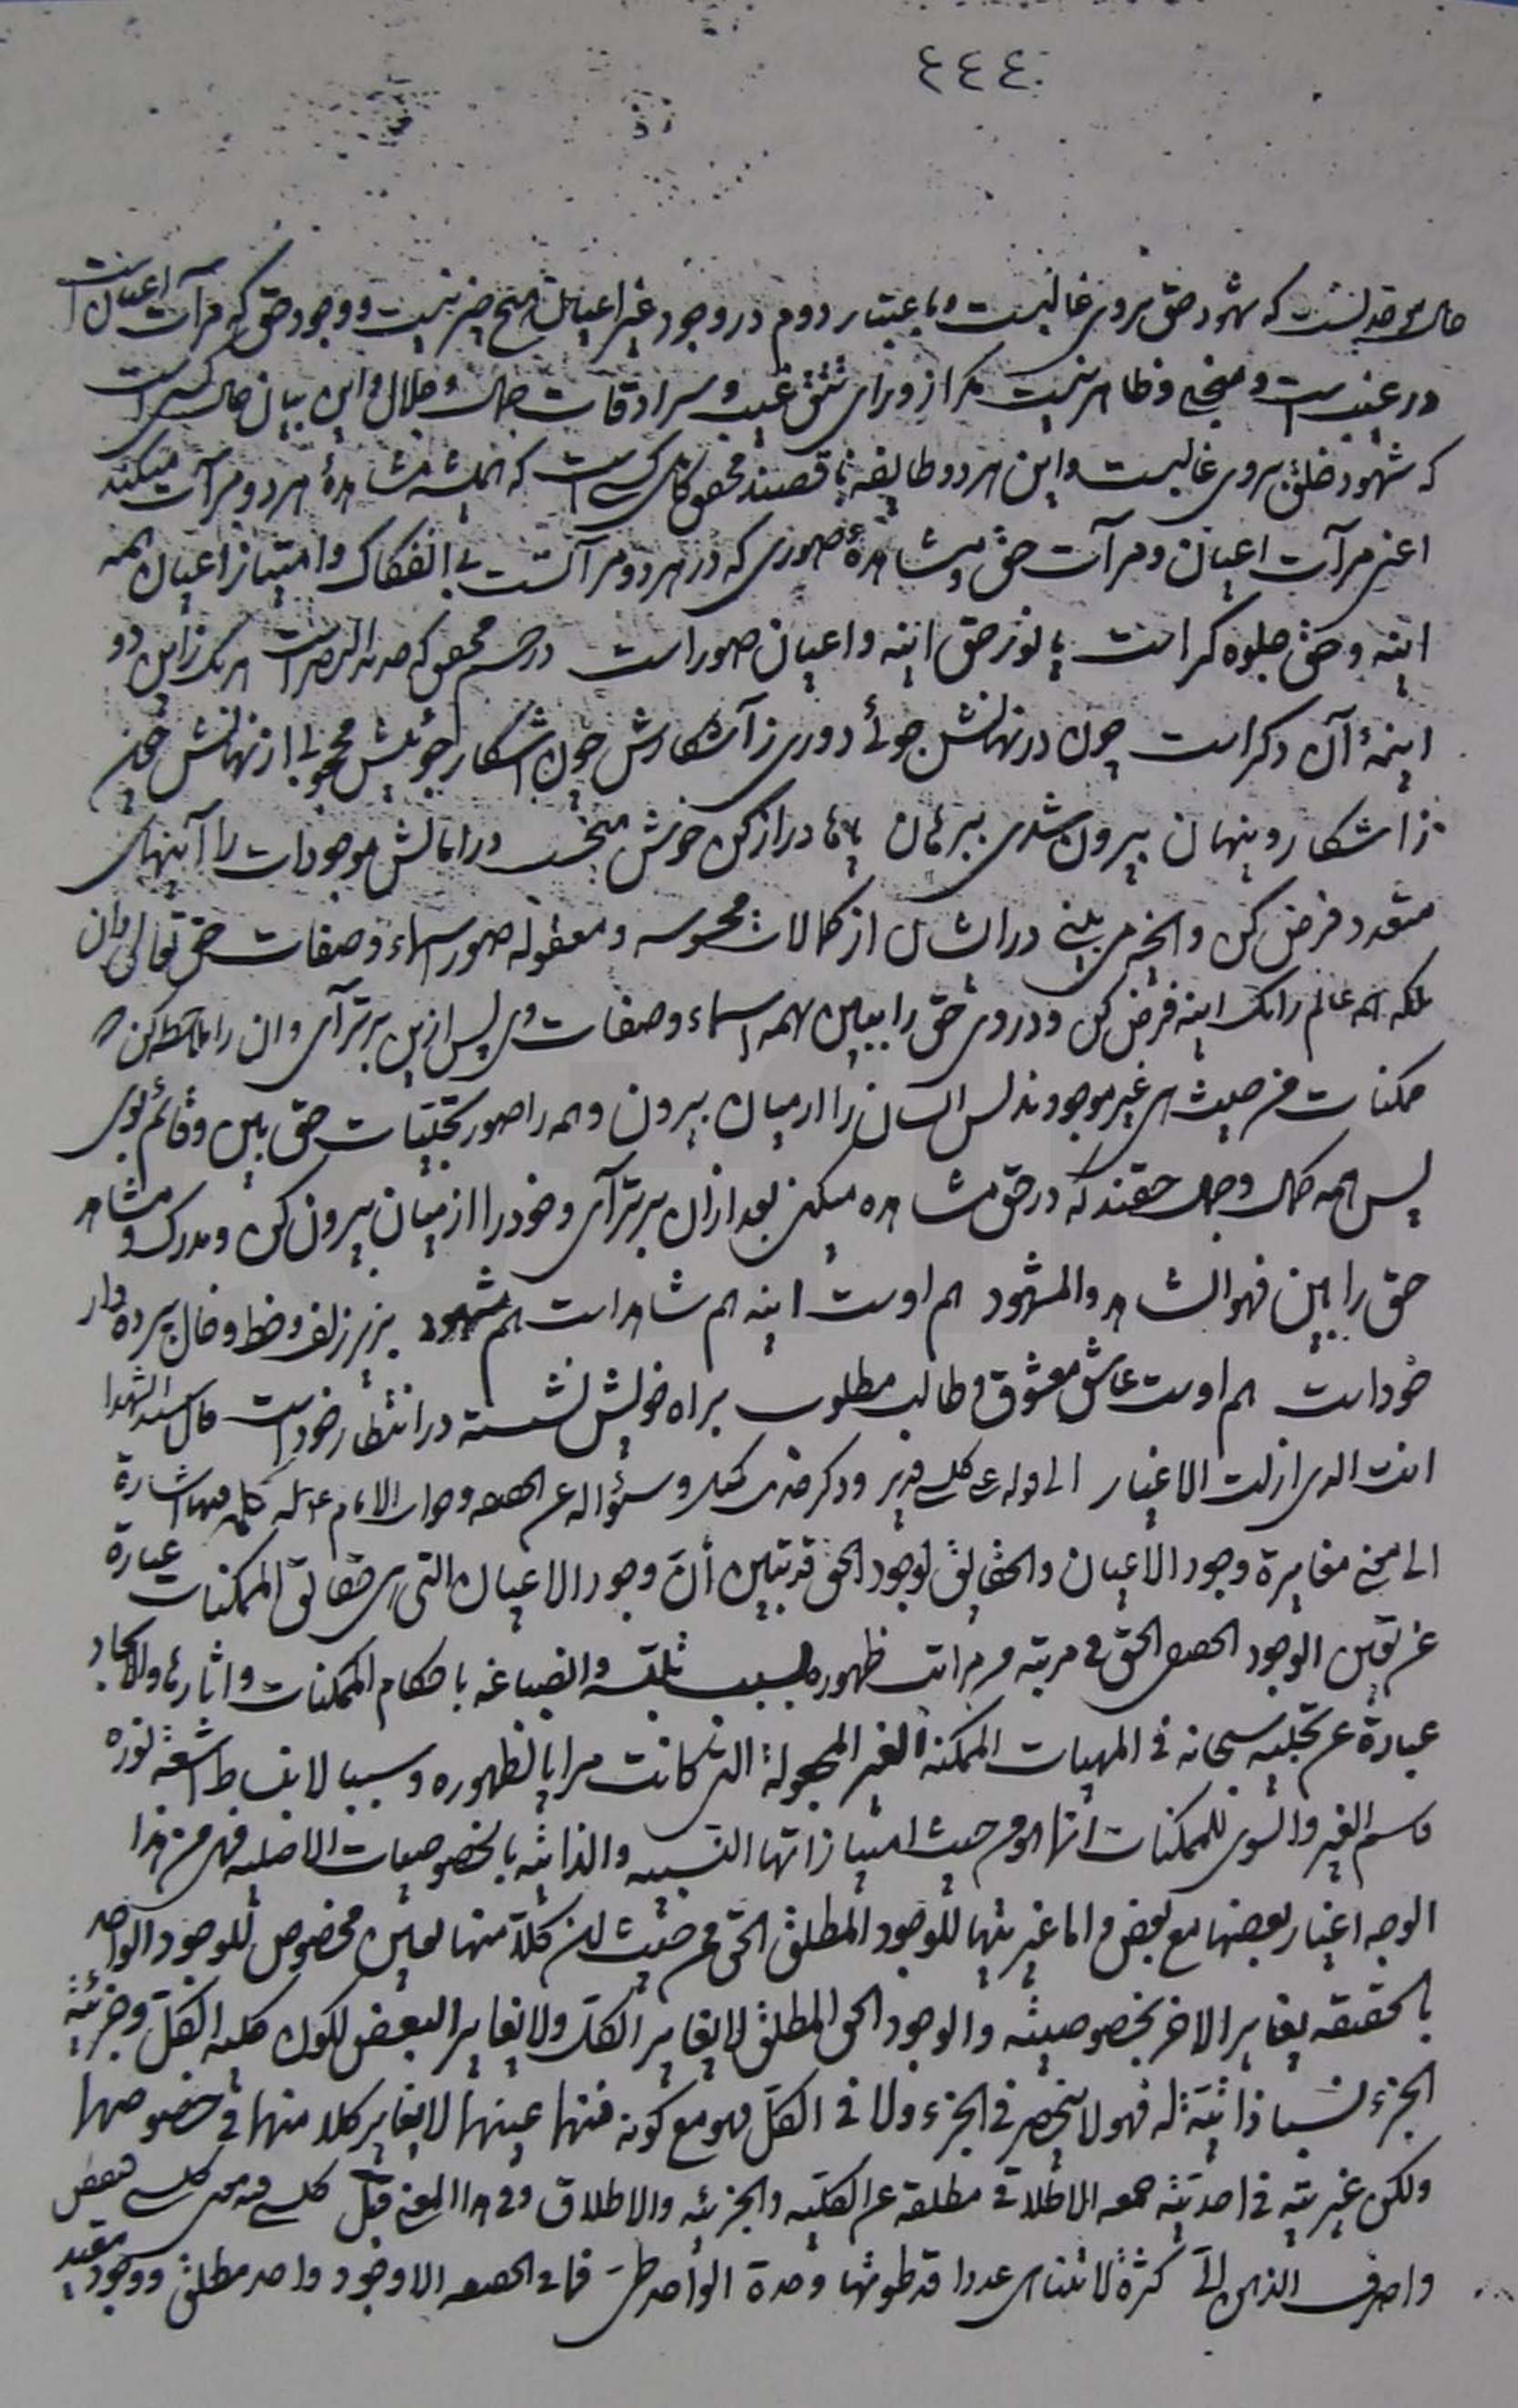 ٤٤٤
حال موحدیست که شهود حق بر وی غالبست و باعتبار دوم در وجود غیر اعیان هیچ نیست و وجود حق که مرآت اعیان است
در غیب است و متجلی و ظاهر نیست مگر از ورای تتق غیب و سرادقات جمال و جلال و این بیان حال کسی است
که شهود خلق بر وی غالبست و این هر دو طایفه ناقصند محقق کامل کسی است که همیشه مشاهدهٔ هر دو مرآت میکند
اعنی مرآت اعیان و مرآت حق و مشاهدهٔ صوری که در هر دو مرآتست بی انفکاک و امتیاز اعیان همه
اینه و حق جلوه کر است یا نور حق اینه و اعیان صور است در چشم محقق که حدید البصر است هر یک زاین دو
اینهٔ آن دکر است چون در نهانش جوئی دوری ز آشکارش چون اشکار جوئیش محجوبی از نهانش چون
ز اشکار و پنهان بیرون شدی ببرهان پا دراز کن خوش میخسب در امانش موجودات را آینهای
متعدد فرض کن و انچه می بینی در ایشان از کمالات محسوسه و معقوله صور اسماء و صفات حق تعالی دان
بلکه همه عالم را یک اینه فرض کن و در وی حق را ببین بهمه اسماء و صفات وی پس ازین برتر آی و ان را ملاحظه کن که
ممکنات من حیث هی غیر موجودند پس ایشان را از میان بیرون و همه را صور تجلیات حق بین و قائم بوی
پس همه کمال و جمال حقند که در حق مشاهده میکنی بعد ازان برتر آی و خود را از میان بیرون کن و مدرک و مشاهد
حق را بین فهو الشاهد والمشهود هم اوست اینه هم شاهد است هم مشهود بزیر زلف و خط و خال پرده دار
خود است هم اوست عاشق معشوق و طالب مطلوب براه خویش نشسته در انتظار خود است قال سید الشهدا
انت الذی ازلت الاغیار الی قوله علی کل شی قدیر و ذکر حدیث کمیل و سئواله عن الحقیقه و جواب الامام علیه کل فیها اشارة
الی نفی مغایرة وجود الاعیان والحقایق لوجود الحق قد تبین أن وجود الاعیان التی هی حقایق الممکنات عبارة
عن تعین الوجود الحقیقی الحق فی مرتبة من مراتب ظهوره بسبب تلبسه وانصباغه باحکام الممکنات واثارها والایجاد
عبارة عن تجلیه سبحانه فی المهیات الممکنة الغیر المجعولة التی کانت مرایا لظهوره وسببا لانبساط اشعة نوره
فاسم الغیر والسوی للممکنات انما هو من حیث امتیازاتها النسبیه والذاتیه بالخصوصیات الاصلیه فهی من هذا
الوجه اغیار بعضها مع بعض و اما غیریتها للوجود المطلق الحق فمن حیث ان کلا منها تعین مخصوص للوجود الواحد
بالحقیقه یغایر الاخر بخصوصیته والوجود الحق المطلق لا یغایر الکل ولا یغایر البعض لکون کلیه الکل وجزئیة
الجزء نسبا ذاتیة له فهو لا ینحصر فی الجزء ولا فی الکل فهو مع کونه فیهما عینهما لا یغایر کلا منهما فی خصوصهما
ولکن غیریته فی احدیته جمعه الاطلاقی مطلقه عن الکلیه والجزئیه والاطلاق وفی هذا المعنی قیل کل شی فیه معنی کل شی فتفطن
واصرف الذهن الیّ کثرة لا تتناهی عددا قد طوتها وحدة الواحد طیّ فما فی الحقیقه الا وجود واحد مطلق ووجود مقید